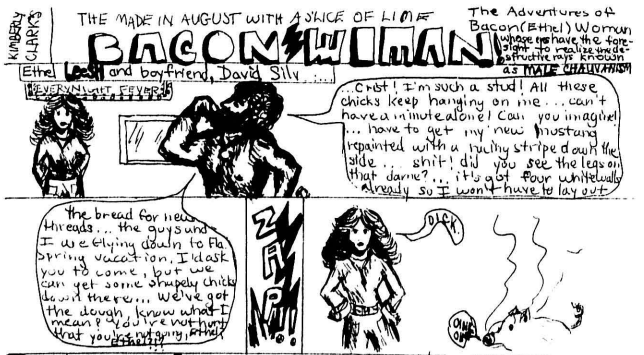 KIMBERLY
CLARK'S
THE MADE IN AUGUST WITH A SLICE OF LIME
BACON WOMAN!
The Adventures of
Bacon (Ethel) Woman
whose eyes have the fore-
sight to realize the de-
structive rays known
as MALE CHAUVANISM
Ethel Leesh and boyfriend, David Silv ...
EVERYNIGHT FEVER
...Crist! I'm such a stud! All these
chicks keep hanging on me... can't
have a minute alone! Can you imagine!
... have to get my new Mustang
repainted with a stripe down the
side... shit! did you see the legs on
that dame?... it's got four whitewalls
already so I won't have to lay out
the bread for new
threads... the guys and
I are flying down to Fla.
Spring vacation, I'd ask
you to come, but we
can get some shapely chicks
down there... we've got
the dough, know what I
mean? You're not hurt
that you're not going, Ethel
Ethel?!!
ZAP!!
DICK.
OINK
OINK